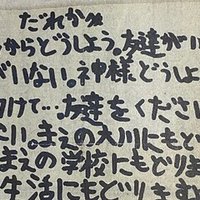 だれか
からどうしよう。友達がい
がいない。神様どうしよ
けて…友達をくださ
い。まえの大川にもど
まえの学校にもどりま
生活にもどりま